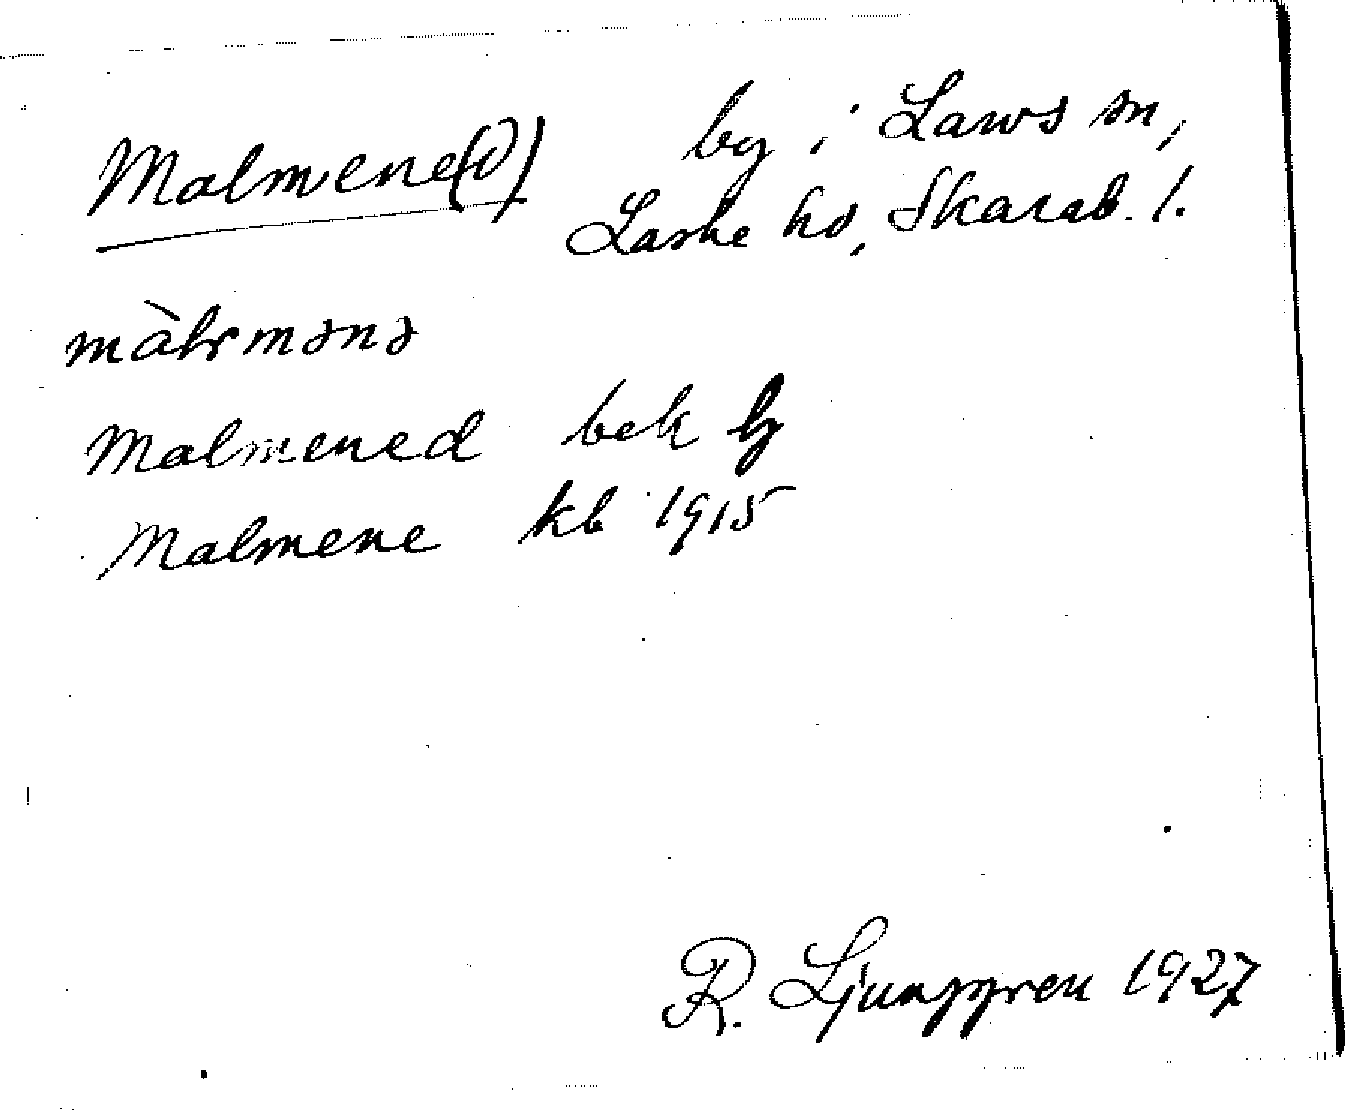 Malmene(d) by i Laws sn,
Laske hd, Skarab. l.
màlrmənə
Malmened bek
Malmene kb 1915
R. Ljunggren 1927